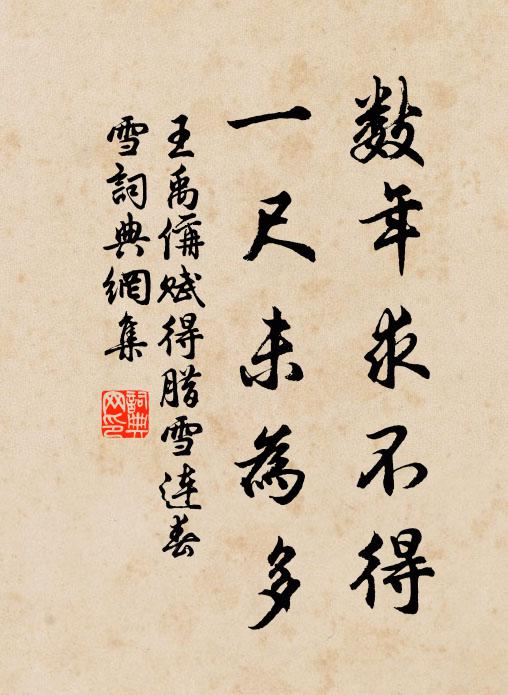 數年求不得
一尺未為多
王禹偁賦得腊雪連春
雪詞典網集
詞典
网印